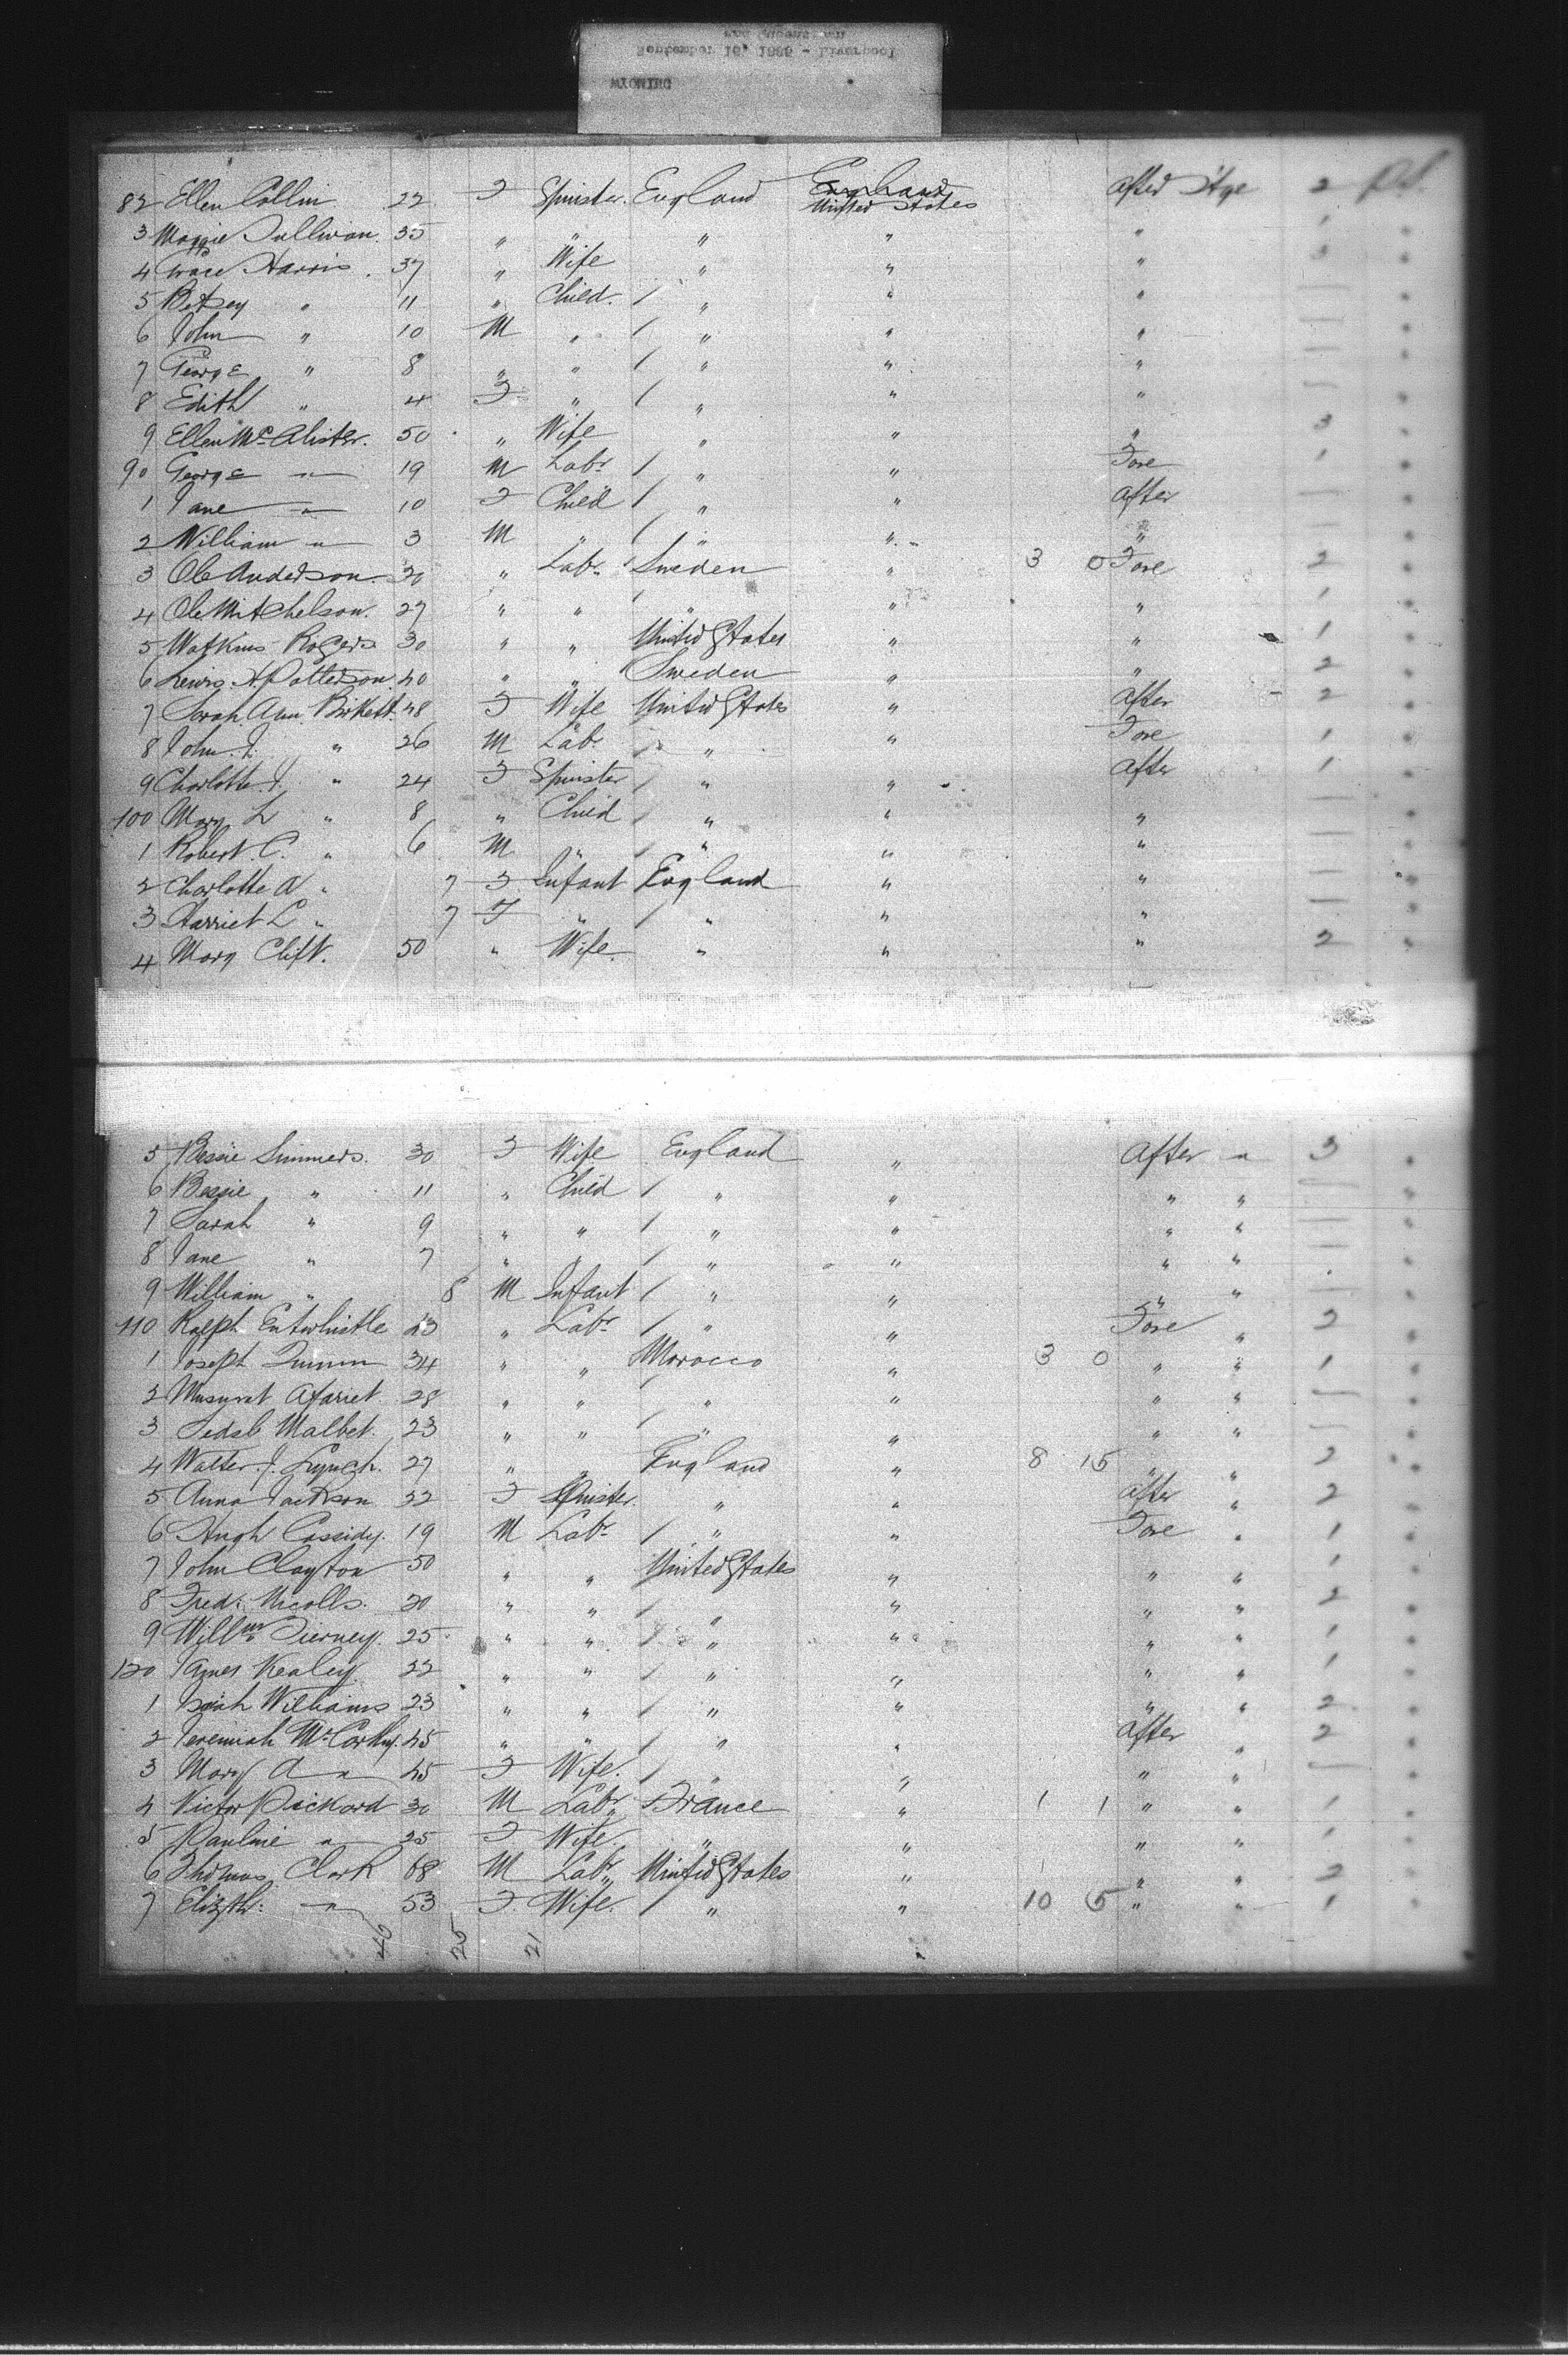 WYOMING
September 16, 1886 - Liverpool
and Queenstown
82 Ellen Collin 22 F Spinster England England United States after Stge 2
3 Maggie Sullivan. 35 " " " " " 1
4 Grace Harris. 37 " Wife " " " 3
5 Betsey " 11 " Child. / " " " —
6 John " 10 M " / " " " —
7 George " 8 " " / " " " —
8 Edith " 4 F " / " " " —
9 Ellen McAlister. 50 " Wife " " " 3
90 George " 19 M Labr / " " Fore 1
1 Jane " 10 F Child / " " after —
2 William " 3 M " / " " " —
3 Ole Anderson 30 " Labr Sweden " 3 0 Fore 2
4 Ole Mitchelson. 27 " " / " " " 1
5 Watkins Rogers 30 " " United States " " 1
6 Lewis. A. Patterson 40 " " Sweden " " 2
7 Sarah. Ann. Birkett. 48 F Wife United States " after 2
8 John. J. " 26 M Labr / " " Fore 1
9 Charlotte. J. " 24 F Spinster / " " after 1
100 Mary L " 8 " Child / " " " —
1 Robert. C. " 6 M " / " " " —
2 Charlotte A " 7 F Infant England " " —
3 Harriet L " 7 F " / " " " —
4 Mary Clift. 50 " Wife. " " " 2
5 Bessie Summers. 30 F Wife England " After " 3
6 Bessie " 11 " Child / " " " " —
7 Sarah " 9 " " / " " " " —
8 Jane " 7 " " / " " " " —
9 William " 8 M Infant / " " " " —
110 Ralph Entwhistle 23 " Labr / " " Fore " 2
1 Joseph 34 " " Morocco " 3 0 " " 1
2 28 " " / " " " " —
3 Malbet. 23 " " / " " " " —
4 Walter. J. Lynch. 27 " " England " 8 15 " " 2
5 Anna Jackson 22 F Spinster. " " after " 2
6 Hugh Cassidy. 19 M Labr / " " Fore " 1
7 John Clayton 50 " " United States " " " 1
8 Fredk Nicolls. 30 " " / " " " " 2
9 Willm Tierney. 25 " " / " " " " 1
120 James Kealey 22 " " / " " " " 1
1 Isaiah Williams 23 " " / " " " " 2
2 Jeremiah McCarthy. 45 " " / " " after " 2
3 Mary A " 45 F Wife. / " " " " —
4 Victor Pickard 30 M Labr France " 1 1 " " 1
5 Pauline " 25 F Wife. " " " " 1
6 Thomas Clark 68 M Labr United States " " " 2
7 Elizth: " 53 F. Wife. / " " 10 5 " " 1
40 25 21